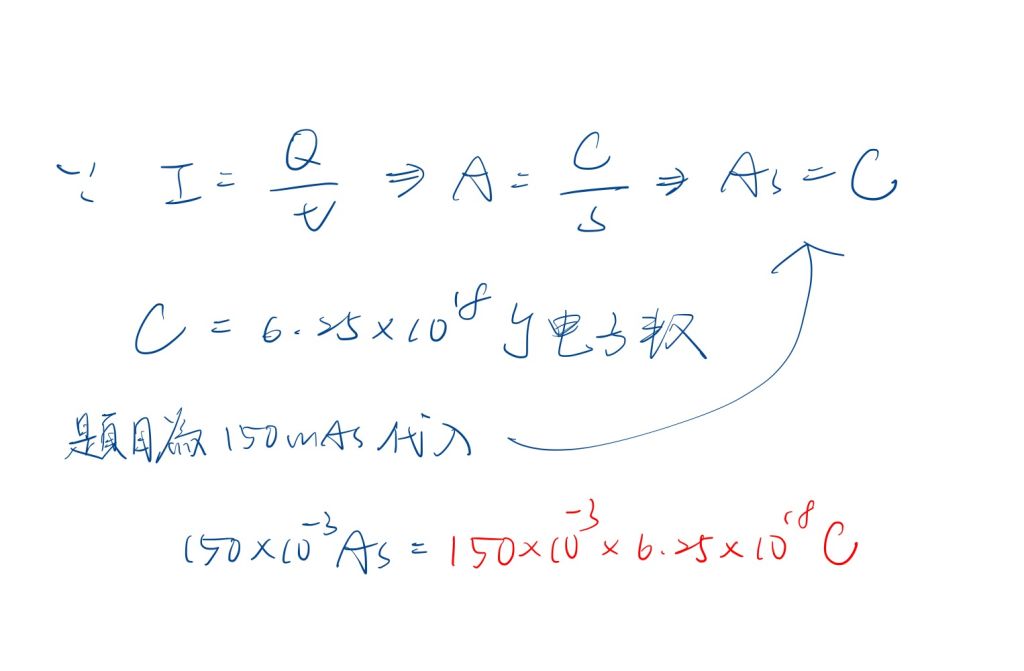 ∵ I = Q/t ⇒ A = C/s ⇒ As = C
C = 6.25×10^18 个电子数
題目為 150mAs 代入
150×10^-3 As = 150×10^-3 × 6.25×10^18 C